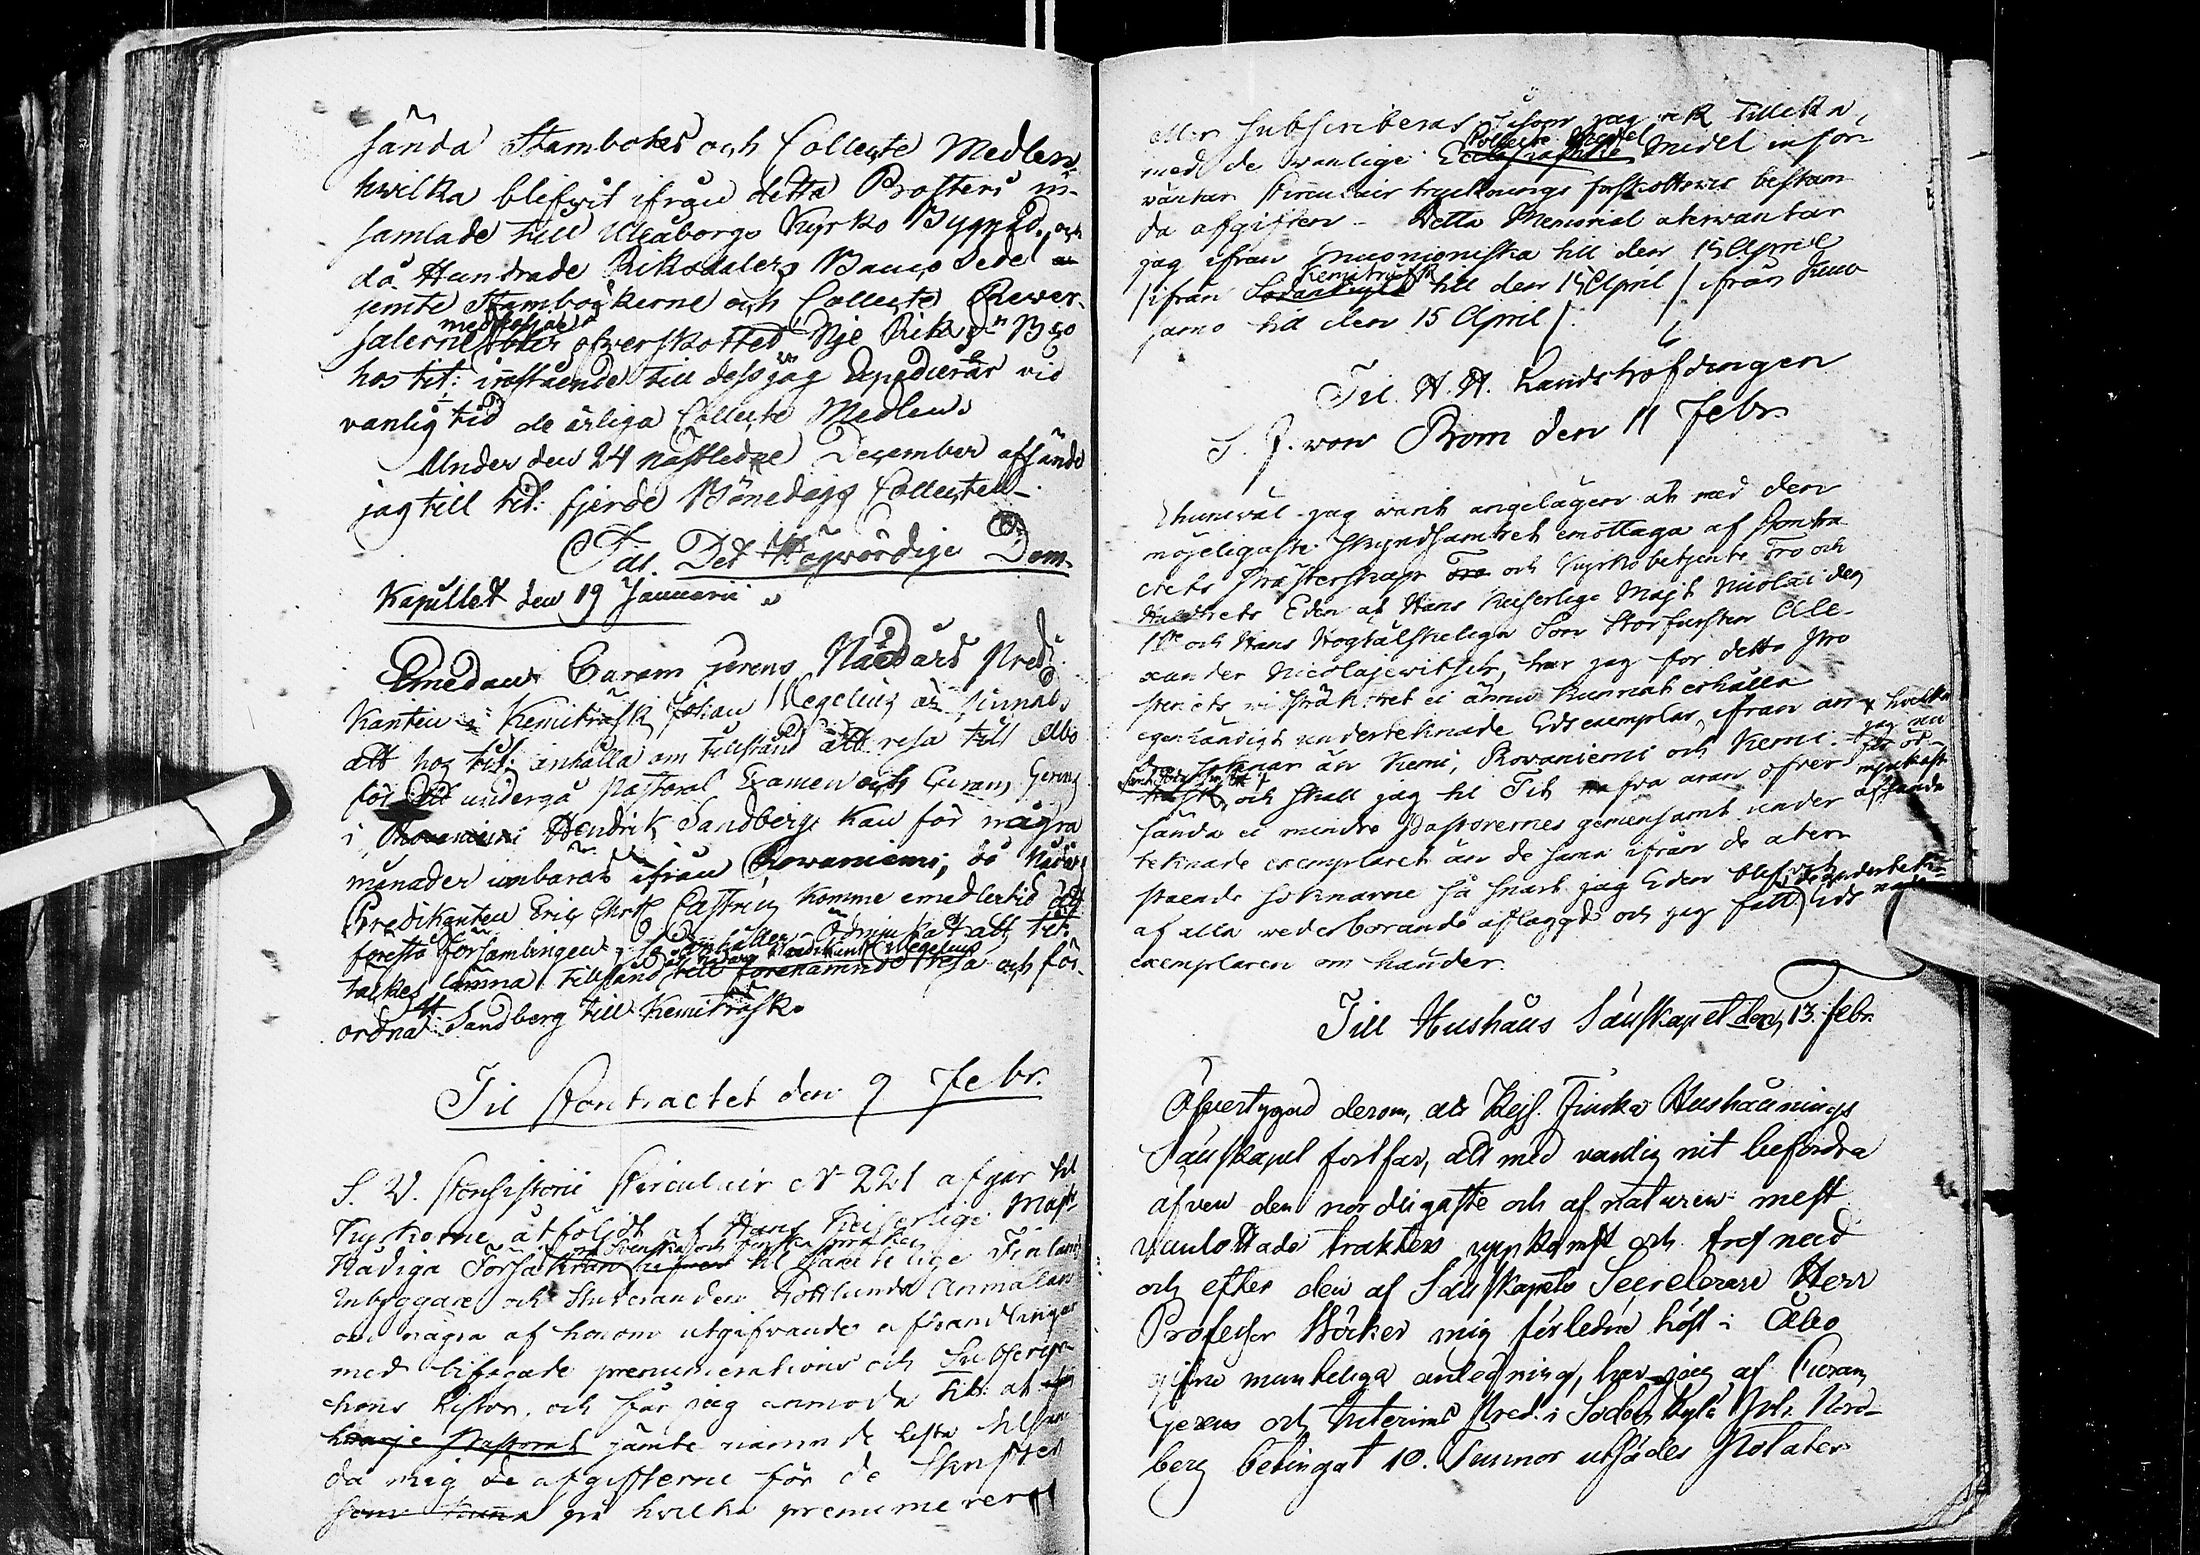 sända Stamboks och Collecte Medlen
hvilka blifvit ifrån detta Prosteri in-
samlade till Uleåborgs Kyrko Byggnad, och
då Hundrade Riksdalers Banco Sedel
jemte Stambökerne och Collecte Rever-
salerne medföljer öfverskottet Nje Riksd. Bco
hos tit: innestående till dess jag expedierar vid
vanlig tid de årliga Collecte Medlen.
Under den 24 nästledne December afsände
jag till tit: fjerde Bönedags Collecten.
Till Det Högvördige Dom-
Kapitlet den 19 Januarii
Emedan Curam gerens Nådårs Predi-
kanten i Kemiträsk Johan Wegelius är sinnad
att hos tit: anhålla om tillstånd att resa till Åbo
för att undergå Pastoral Examen och Curam Gerens
i Rovaniemi Hendrik Sandberg kan för några
månader umbäras ifrån Rovaniemi, då Nådårs
Predikanten Eric Castrén komme emedlertid att
förestå Församlingen, anhåller ödmjukast att tit:
täckes lämna tillstånd till förenämnde resa och för-
ordna Sandberg till Kemiträsk.
Til Contractet den 9 Febr.
S. V. Konsistorii Circulair N 221 afgår til
Kyrkorne åtföljdt af Hans Keiserlige Majts
Nådiga Försäkran på Svenska och finska språken til samtelige Finlands
Inbyggare och Studeranden Gottlunds Anmälan
om några af honom utgifvande afhandlingar
med bifogade prenumerations och Subscrip-
tions Listor, och får jag anmoda tit: at
hvarje Pastorat jämte nämnde lista tilsän
da mig de afgifterne för de Skrifter
som kunna på hvilka prenumereras
eller subscriberas
med de vanlige Collecte Medel in for-
väntar Circulair trycknings bestäm
da afgiften. Detta Memorial återväntar
jag ifrån Muonioniska till den 15 April
ifrån Kemiträsk till den 15 April / ifrån Kuo-
jarvi till den 15 April /.
Til H. H. Landshöfdingen
S. F. von Born den 11 Febr.
Ehuruväl jag varit angelägen at med den
möjeligaste skyndsamhet emottaga af Contra
ctets Prästerskap och Kyrkobetjente Tro och
Huldhets Eden at Hans Keiserlige Majt Nicolai den
1ste och Hans Högtälskelige Son Storfursten Ale-
xander Nicolajewitsch, har jag för detta Pro
steriets vidsträkthet ei ännu kunnat erhålla
egenhändigt underteknade Edsexemplar ifrån an-
dra socknar än Kemi, Rovaniemi och Kemi-
träsk hvilka jag nu får ödmjukast afsända
och skall jag til Tit fra aran öfver
sända ei mindre Pastorernes gemensamt under
teknade exemplaret än de sama ifrån de åter
stående soknarne så snart jag Eden blifvit
af alla vederbörande aflagd och jag fått de underteknade Eds
exemplaren om händer.
Till Hushåns Sällskapet den 13. febr.
Öfvertygad derom, att Kejs. Finska Hushållnings
Sällskapet fortfar, att med vanlig nit befordra
äfven den nordligaste och af naturen mest
vanlottade traktens uppkomst och trefnad
och efter den af Sällskapets Secreterare Herr
Professor Böcker mig förleden höst i Åbo
gifne munteliga anledning, har jag af Curam
Gerens och Interims Pred. i Sodankylä Joh. Nord-
berg betingat 10. Tunnor utsädes Potater